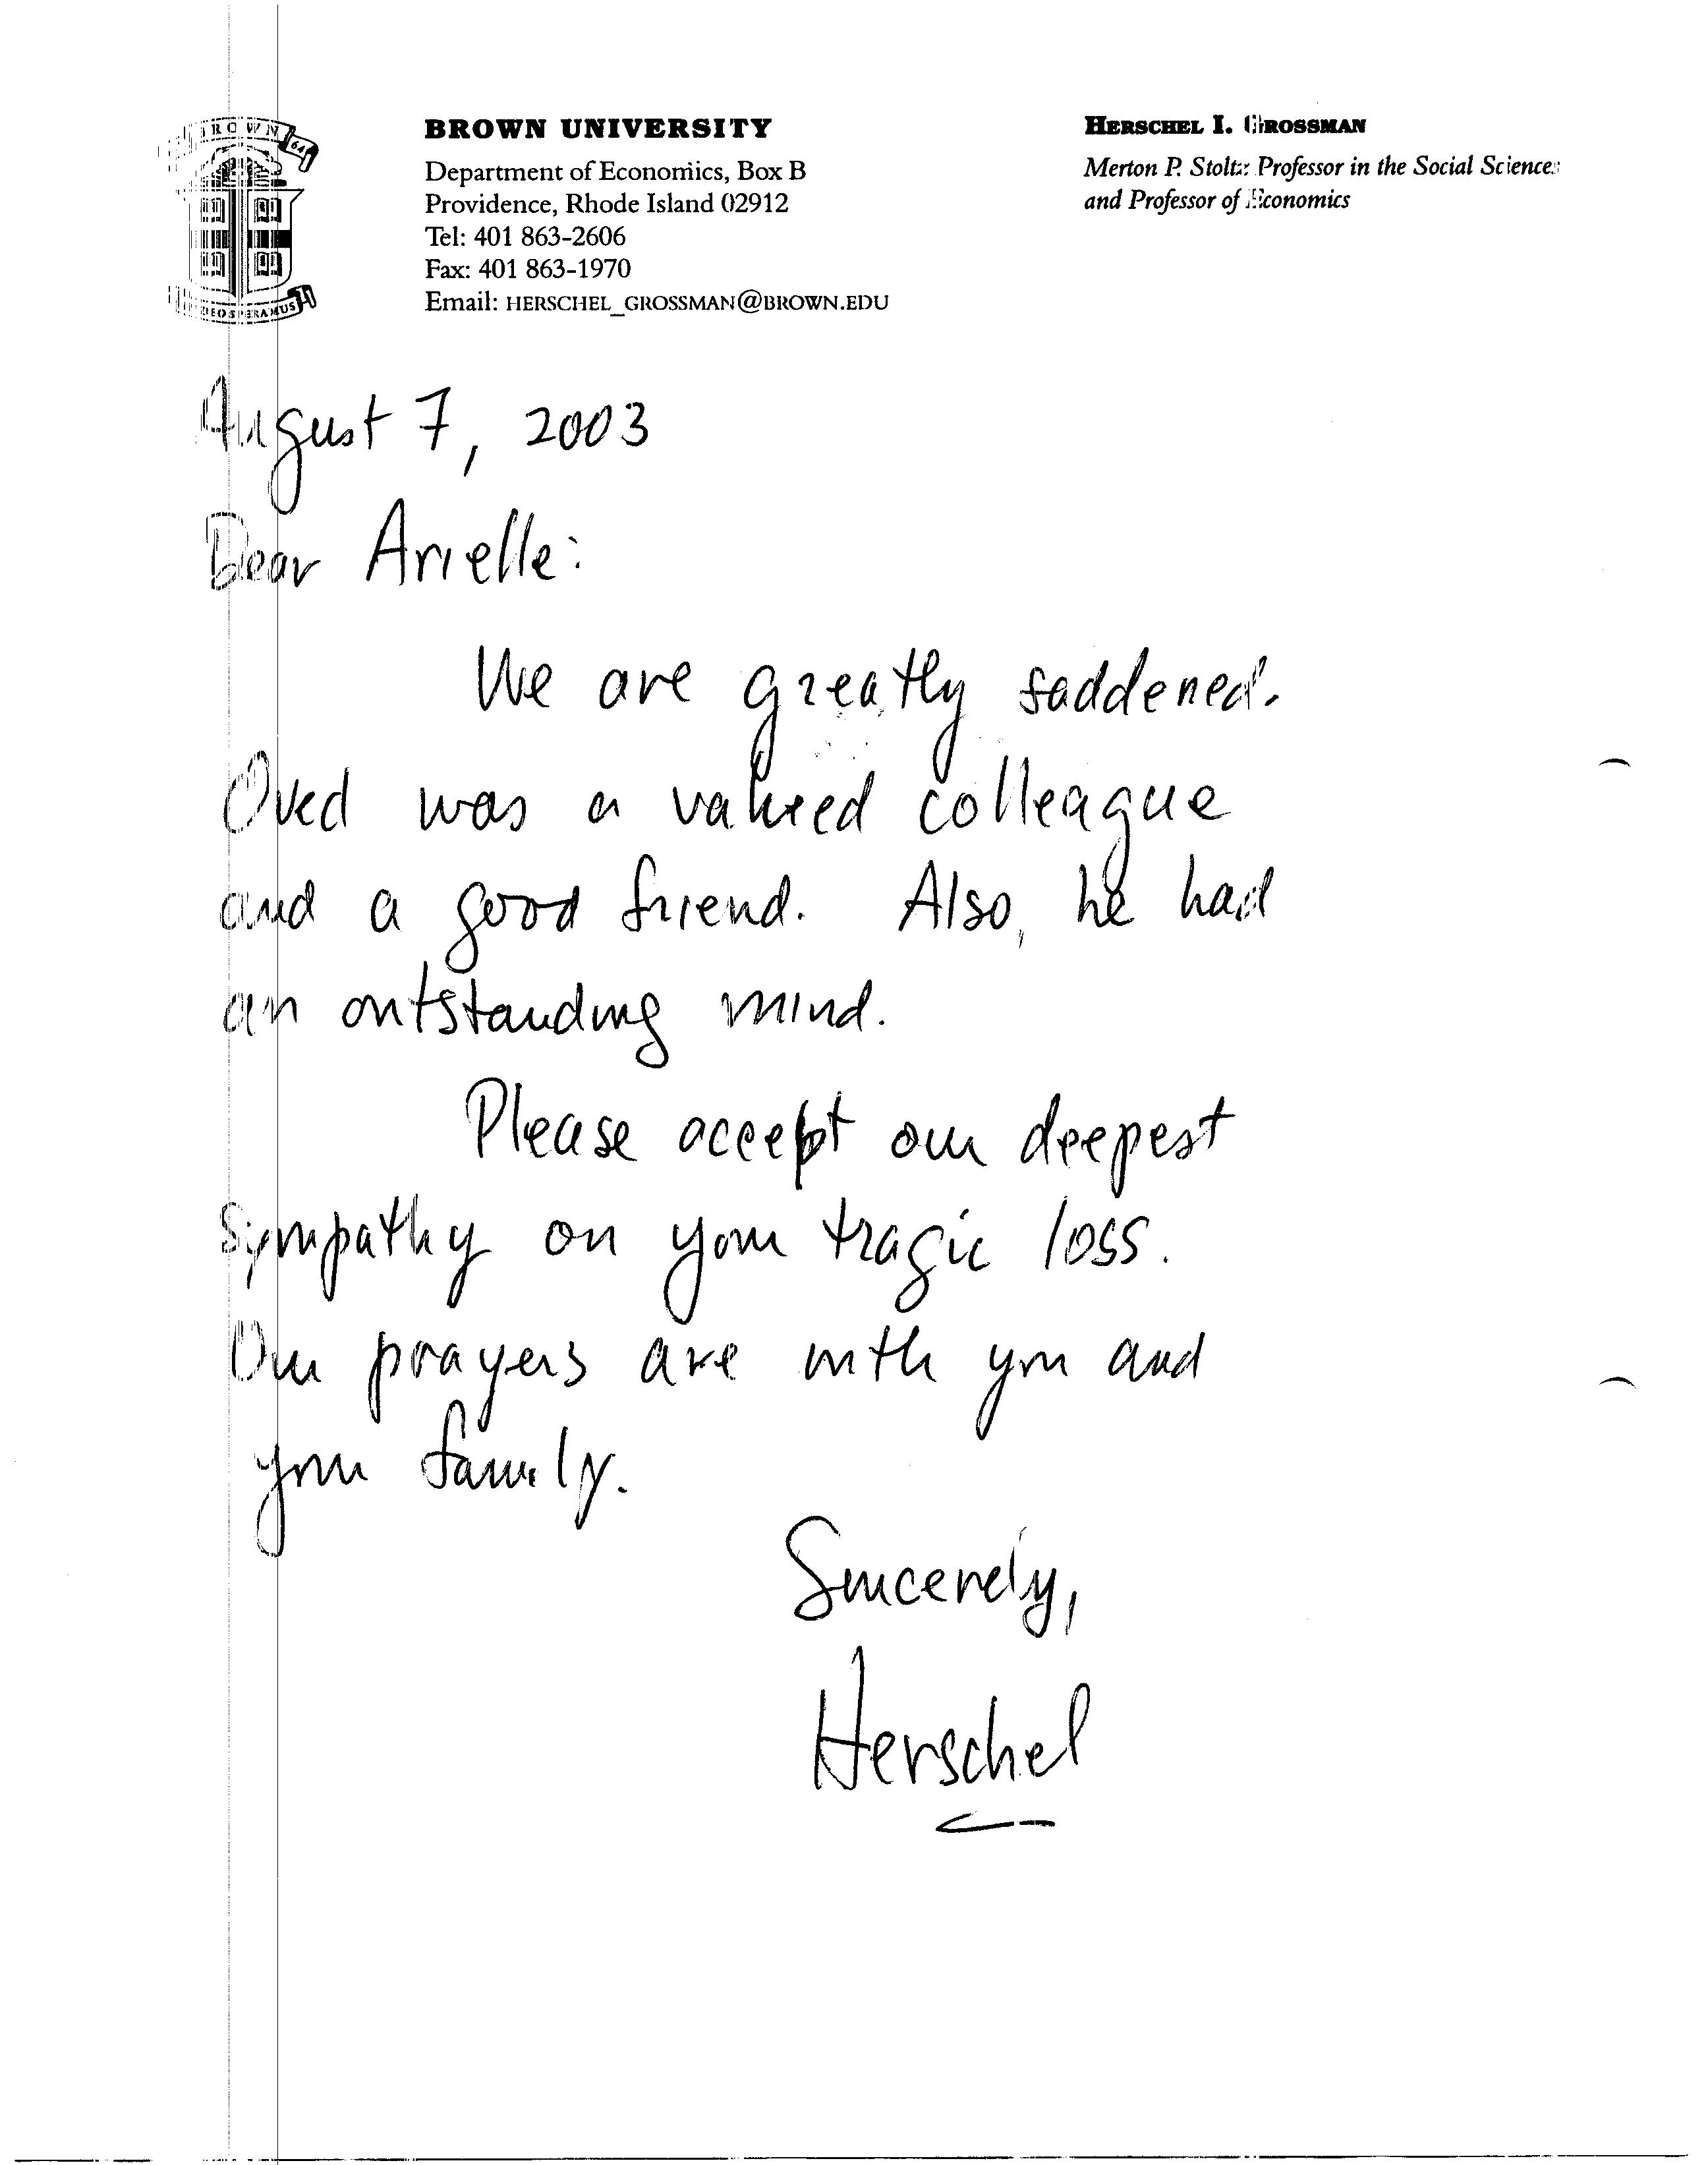 BROWN
BROWN UNIVERSITY
Department of Economics, Box B
Providence, Rhode Island 02912
Tel: 401 863-2606
Fax: 401 863-1970
Email: HERSCHEL_GROSSMAN@BROWN.EDU
HERSCHEL I. GROSSMAN
Merton P. Stoltz Professor in the Social Sciences
and Professor of Economics
August 7, 2003
Dear Arielle:
We are greatly saddened.
Oved was a valued colleague
and a good friend. Also, he had
an outstanding mind.
Please accept our deepest
sympathy on your tragic loss.
Our prayers are with you and
your family.
Sincerely,
Herschel